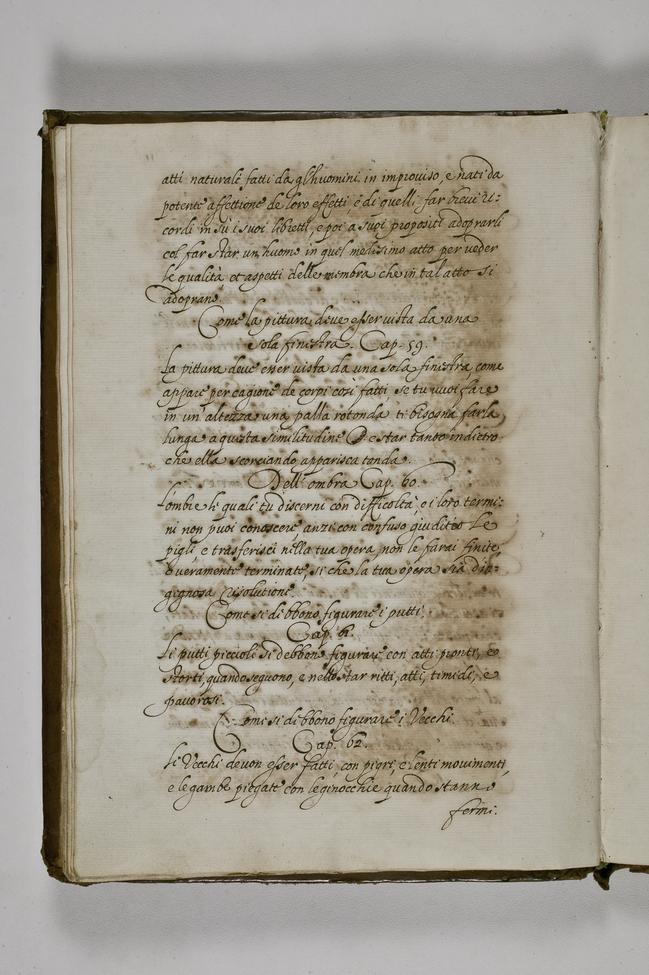 atti naturale fatti da gl'huomini in improuiso, e nati da
potente affettione de loro effetti, e di quelli far breui ri:
cordi in su i suoi libretti, e poi a suoi propositi adoprarli
col far star un huomo in quel medesimo atto per ueder
le qualità et aspetti delle membra che in tal atto si
adoprano.
Come la pittura deue esser uista da una
sola finestra. Cap. 59.
La pittura deue esser uista da una sola finestra, come
appare per cagione de corpi così fatti se tu uuoi fare
in un'altezza una palla rotonda ti bisogna farla
lunga a questa similitudine e star tanto indietro
che ella scorciando apparisca tonda.
Dell'ombra Cap. 60.
L'ombre le quali tu discerni con difficoltà, e i loro termi:
ni non puoi conoscere anzi con confuso giuditio le
pigli, e trasferisci nella tua opera, non le farai finite,
oueramente terminate, si che la tua opera sia d'in:
gegnosa risolutione.
Come si debbono figurare i putti.
Cap. 61.
Li putti piccioli si debbono figurare con atti pronti, e
storti, quando seggono, e nello star ritti, atti, timidi, e
pauorosi.
Come si debbono figurare i Vecchi.
Cap. 62.
Li Vecchi deuon esser fatti, con pigri, e lenti mouimenti,
e le gambe piegate con le ginocchie quando stanno
fermi.